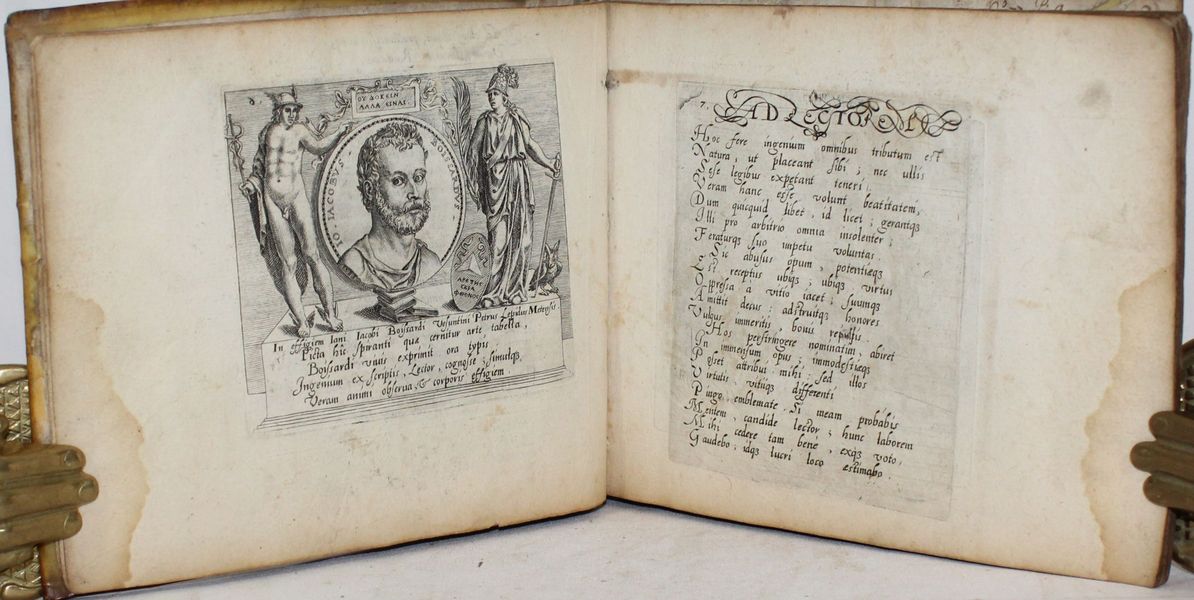 ΟΥ ΔΟΚΕΙΝ
ΑΛΛΑ ΕΙΝΑΙ.
IO. IACOBVS BOISSARDVS.
ΑΡΕΤΗΣ
ΦΘΟΝΟΣ
In effigiem Iani Iacobi Boissardi Vesuntini Petrus Lepidus Metensis
Picta hic spiranti quæ cernitur arte tabella,
Boissardi viuis exprimit ora typis
Ingenium ex scriptis, Lector, cognosse; simulq3
Veram animi obserua & corporis effigiem.
7.
AD LECTOREM
Hoc fere ingenium omnibus tributum est
Natura, ut placeant sibi; nec ullis
Sese legibus expetant teneri
Veram hanc esse volunt beatitatem,
Dum quicquid libet, id licet; gerantq3
Illi pro arbitrio omnia insolenter;
Feraturq3 suo impetu voluntas.
Sic abusus opum, potentiæq3
Est receptus ubiq3; ubiq3 virtus
Oppressa a vitio iacet; suumq3
Amittit decus; adstruitq3 honores
Vulgus immeritis, bonis repulsis.
Hos perstringere nominatim, abiret
In immensum opus; immodestiæq3
Posset attribui mihi; sed illos
Virtutis, vitiiq3 differenti
Pingo emblemate. Si meam probabis
Mentem, candide lector; hunc laborem
Mihi cedere tam bene, exq3 voto,
Gaudebo, idq3 lucri loco estimabo.